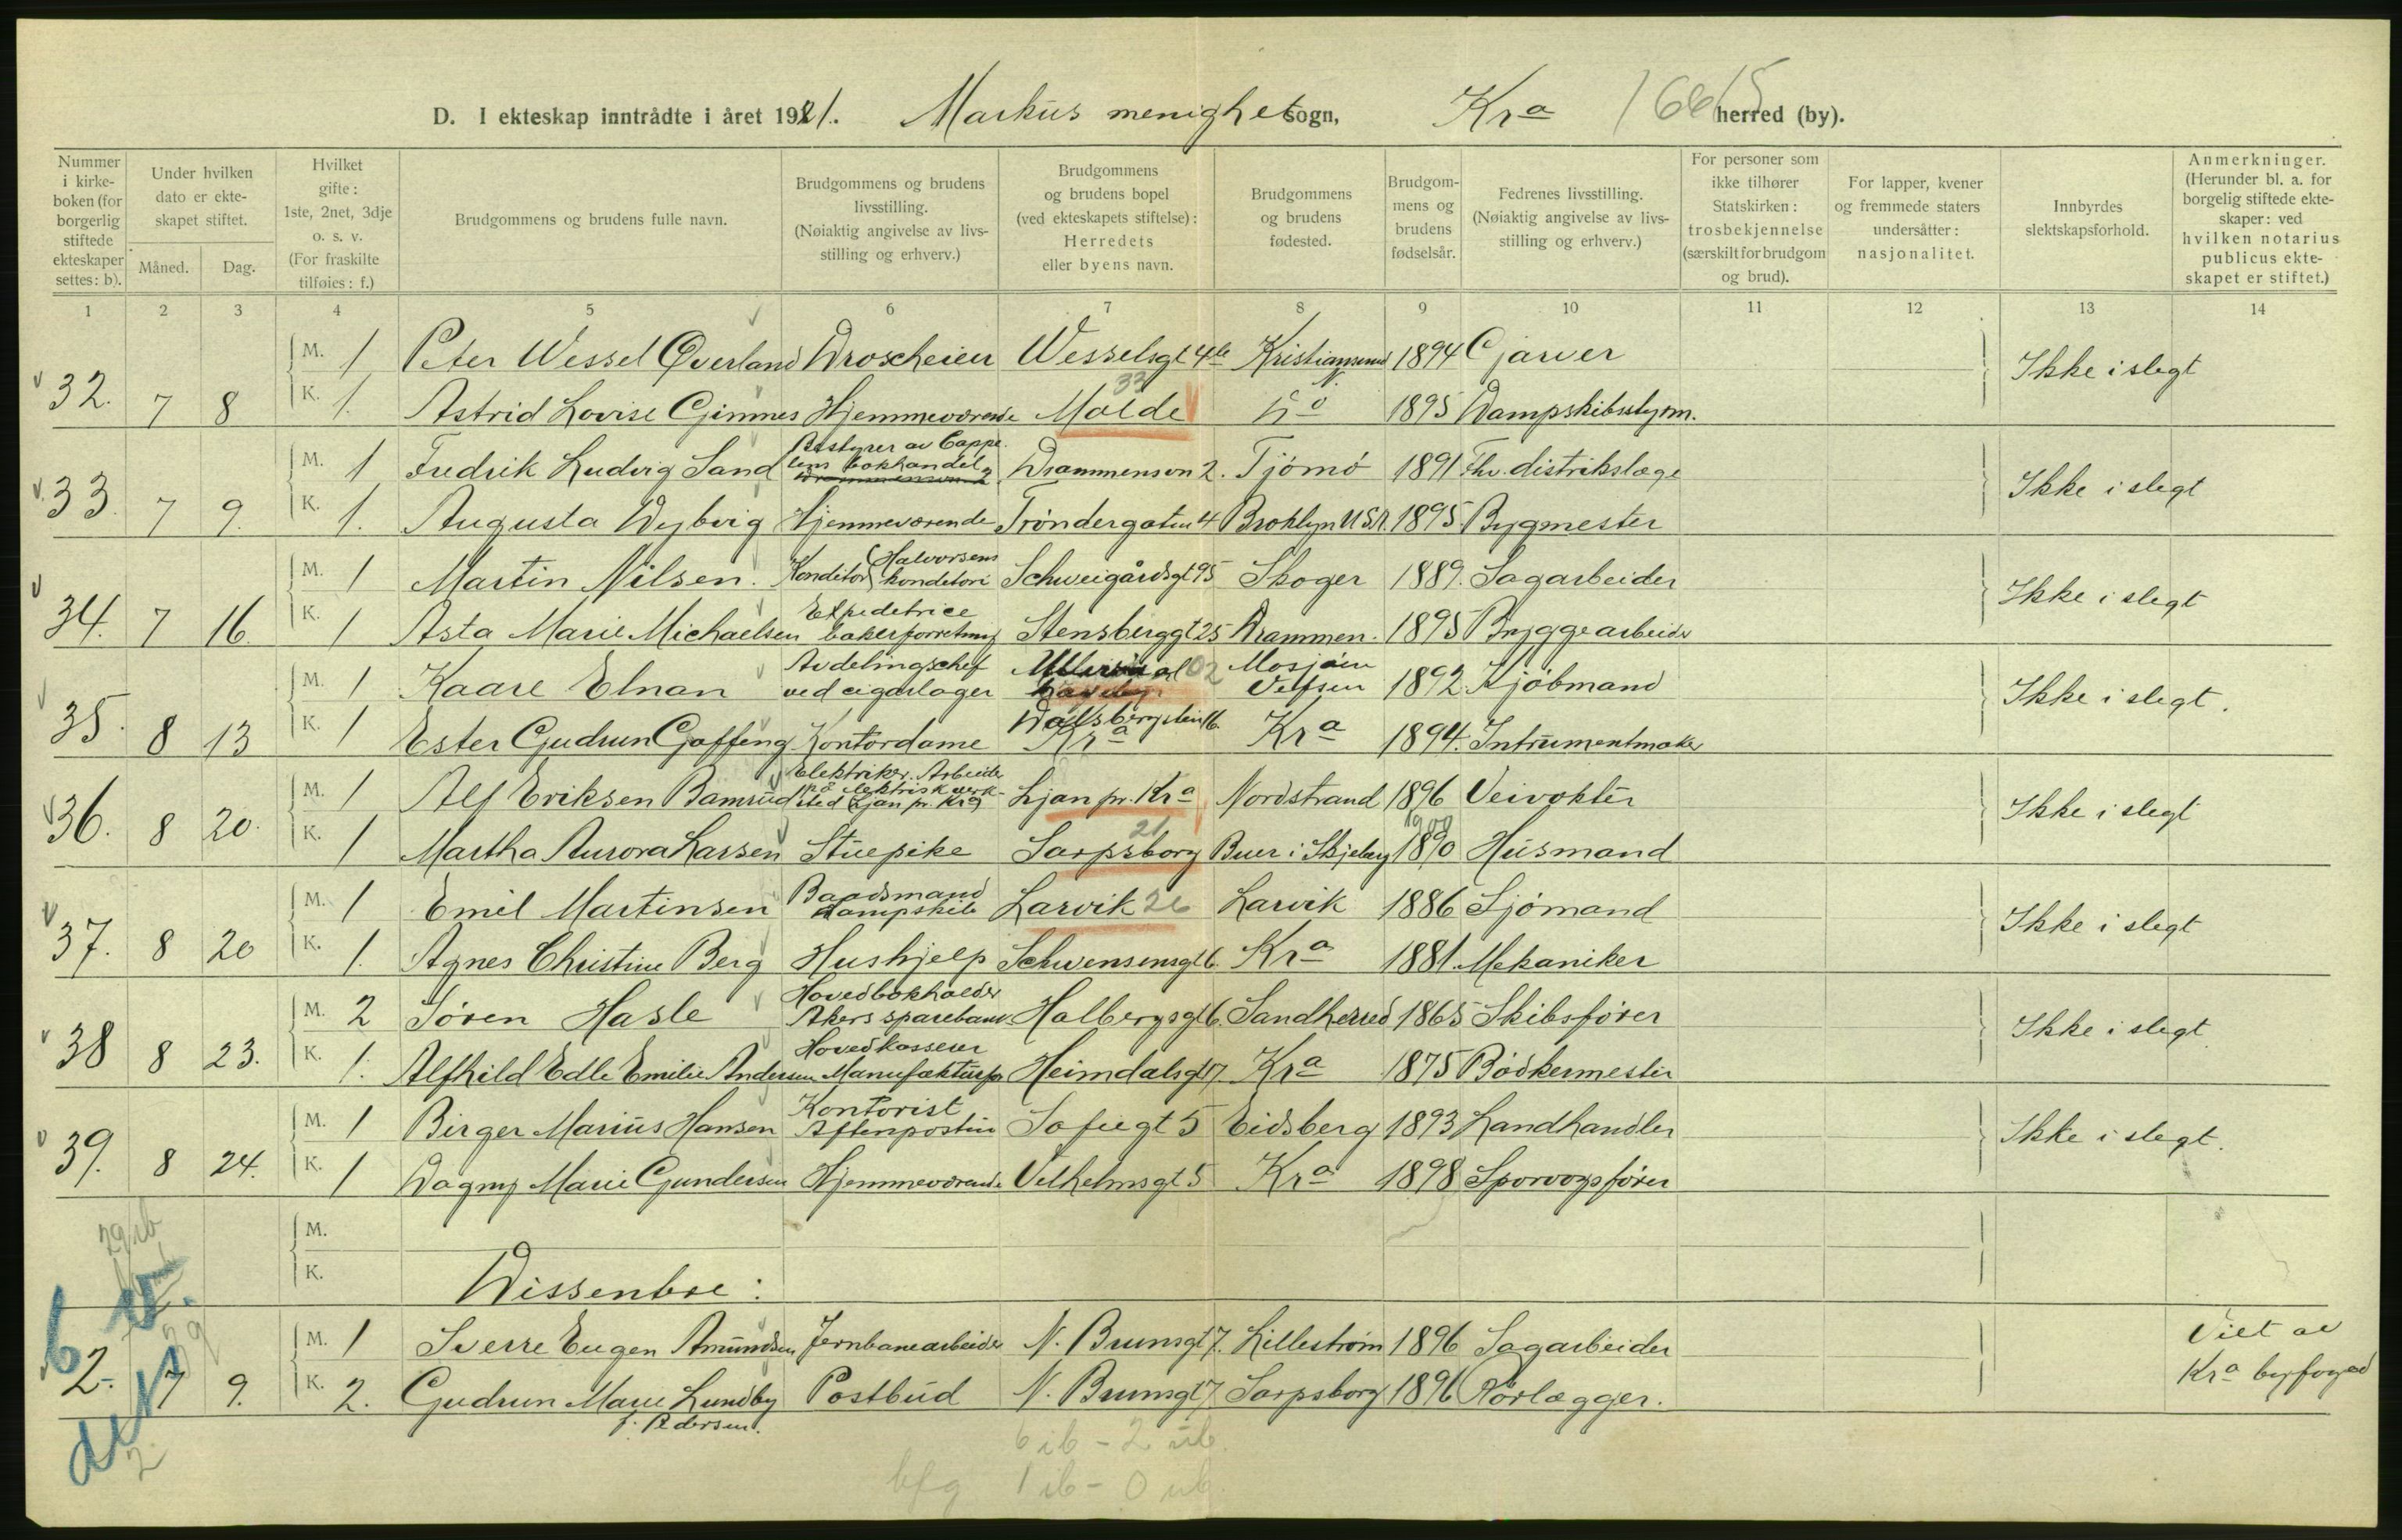 D. I ekteskap inntrådte i året 1921. Markus menighet sogn, Kra 1665 herred (by).
Nummer i kirkeboken (for borgerlig stiftede ekteskaper settes: b).
Under hvilken dato er ekteskapet stiftet.
Måned. Dag.
Hvilket gifte: 1ste, 2net, 3dje o. s. v. (For fraskilte tilføies: f.)
Brudgommens og brudens fulle navn.
Brudgommens og brudens livsstilling. (Nøiaktig angivelse av livsstilling og erhverv.)
Brudgommens og brudens bopel (ved ekteskapets stiftelse): Herredets eller byens navn.
Brudgommens og brudens fødested.
Brudgommens og brudens fødselsår.
Fedrenes livsstilling. (Nøiaktig angivelse av livsstilling og erhverv.)
For personer som ikke tilhører Statskirken: trosbekjennelse (særskilt for brudgom og brud).
For lapper, kvener og fremmede staters undersåtter: nasjonalitet.
Innbyrdes slektskapsforhold.
Anmerkninger. (Herunder bl. a. for borgelig stiftede ekteskaper: ved hvilken notarius publicus ekteskapet er stiftet.)
1 2 3 4 5 6 7 8 9 10 11 12 13 14
32. 7 8 M. 1 Peter Wessel Øverland Droscheier Wesselsgt 4b Kristiansund N. 1894 Garver Ikke i slegt
K. 1. Astrid Lovise Gimnes Hjemmeværende Molde 33 do 1895 Dampskibsstyrm.
33. 7 9. M. 1 Fredrik Ludvig Sand Bestyrer av Cappelens bokhandel Drammensvn 2. Tjømø 1891 Fhv. distrikslæge Ikke i slegt
K. 1. Augusta Dybvig Hjemmeværende Trøndergaten 4 Broklyn U.S.A. 1895 Bygmester
34. 7 16. M. 1 Martin Nilsen. Konditor (Halvorsens konditori Schweigårdsgt 95 Skoger 1889. Sagarbeider Ikke i slegt
K. 1 Asta Marie Michaelsen Expeditrice bakerforretning Stensberggt 25 Drammen. 1895 Bryggearbeider
35. 8 13 M. 1 Kaare Elnan Avdelingschef ved cigarlager 02 Mosjøen Vefsen 1892 Kjøbmand Ikke i slegt.
K. 1 Ester Gudrun Gaffeng Kontordame Kra Kra 1894. Intrumentmaker
36. 8 20. M. 1 Alf Eriksen Bamrud Elektriker. Arbeider på elektrisk verksted Ljan pr. Kra Ljan pr. Kra Nordstrand 1896 Veivokter Ikke i slegt
K. 1 Martha Aurora Larsen Stuepike Sarpsborg 21 Buer i Skjeberg 1890 1900 Husmand
37. 8 20 M. 1 Emil Martinsen Baadsmand dampskib Larvik 26 Larvik 1886 Sjømand Ikke i slegt
K. 1. Agnes Christine Berg Hushjelp Schwensensgt 6. Kra 1881. Mekaniker
38 8 23. M. 2 Søren Hasle Hovedbokholder Akers sparebank Holbergsgt 6. Sandherred 1865 Skibsfører Ikke i slegt.
K. 1. Alfhild Edle Emilie Andersen Hovedkasserer Manufakturfor Heimdalsgt 17. Kra 1875 Bødkermester
39. 8 24. M. 1 Birger Marius Hansen Kontorist Aftenposten Sofiegt 5 Eidsberg 1893 Landhandler Ikke i slegt.
K. 1 Dagny Marie Gundersen Hjemmeværende Vilhelmsgt 5 Kra 1898 Sporvognsfører
M.
K. Dissentere:
2. 7 9. M. 1 Sverre Eugen Amundsen Jernbanearbeider N. Brunsgt 7. Lillestrøm 1896 Sagarbeider Viet av
K. 2. Gudrun Marie Lundby f. Pedersen. Postbud N. Brunsgt 7 Sarpsborg 1896 Rørlægger. Kra byfoged
6 ib - 2 ub.
bfg 1 ib - 0 ub.